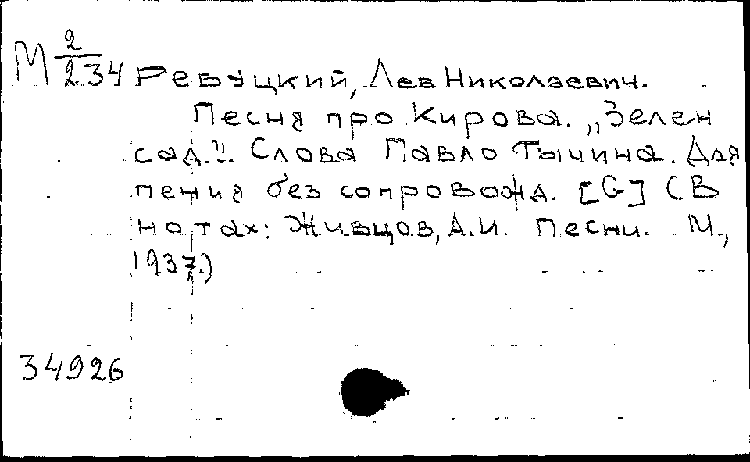 М 2/234 Ревуцкий, Лев Николаевич.
Песня про Кирова. „Зелен
сад.". Слова Павло Тычина. Для
пения без сопровожд. [G] (В
нотах: Живцов, А.И. Песни. М.,
1937.)
34926